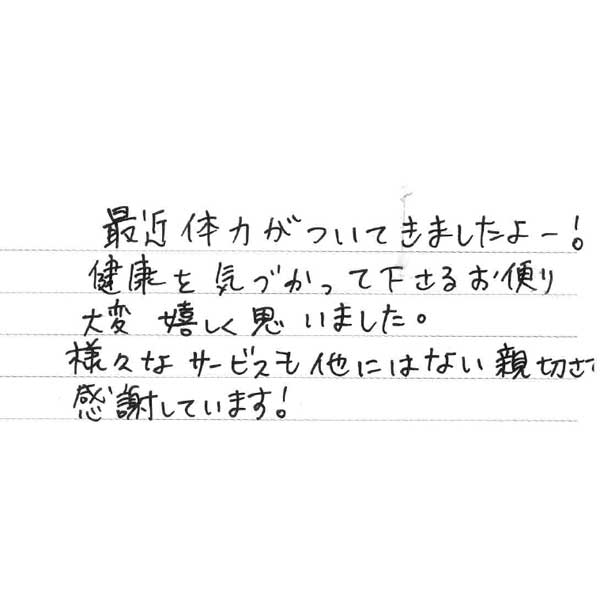 最近体力がついてきましたよー!
健康を気づかって下さるお便り
大変嬉しく思いました。
様々なサービスも他にはない親切さ
感謝しています!